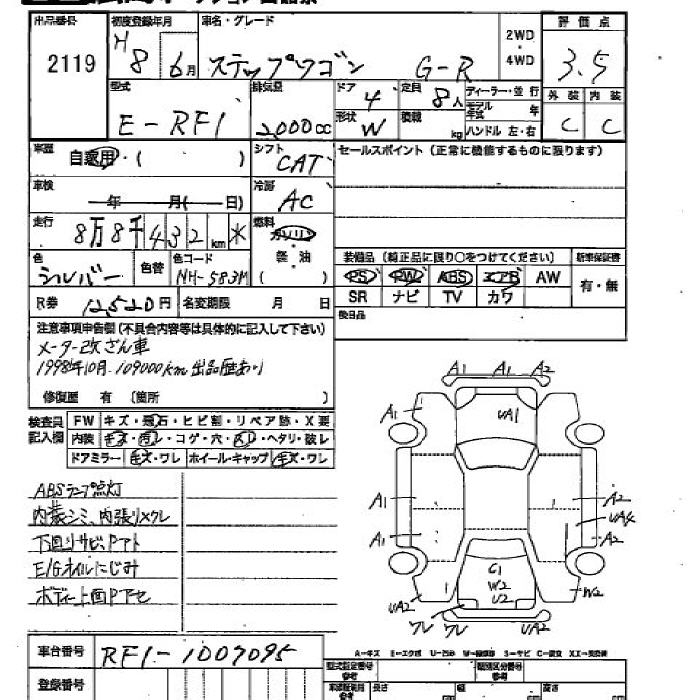 出品番号 初度登録年月 車名・グレード 2WD・4WD 評価点
2119 H 8 6月 ステップワゴン G-R 3.5
型式 排気量 ドア 4 定員 8人 ディーラー・並行 外装 内装
E-RF1 2,000cc 形状 W 積載 kg モデル年式 年 C C
ハンドル 左・右
車歴 自家用・( ) シフト CAT セールスポイント(正常に機能するものに限ります)
車検 年 月( 日) 冷房 AC
走行 8万8千432km 燃料 ガソリン
軽・油
( )
色 シルバー 色替 色コード NH-583M
装備品(純正品に限り○をつけてください) 新車保証書
PS PW ABS エアB AW 有・無
SR ナビ TV カワ
R券 12,520円 名変期限 月 日 後日品
注意事項申告欄(不具合内容等は具体的に記入して下さい)
メーター改ざん車
1998年10月 109000km 出品歴あり
修復歴 有 (箇所 )
検査員記入欄 FW キズ・飛石・ヒビ割・リペア跡・X要
内装 キズ・汚レ・コゲ・穴・・ヘタリ・破レ
ドアミラー キズ・ワレ ホイールキャップ キズ・ワレ
ABSランプ点灯
内装シミ、内張りメクレ
下回りサビ、Pアト
E/Gオイルにじみ
ボディー上面Pアセ
A1 A1 A2
A1 UA1
A1 A2
UA4
A1 A2
C1
W2
U2
UA2 W2
ワレ ワレ UA2
A-キズ E-エクボ U-凹み W-補修跡 S-サビ C-腐食 XX-交換済
車台番号 RF1-1007095
登録番号 型式指定番号 参考 類別区分番号 参考
参考 長さ 幅 高さ